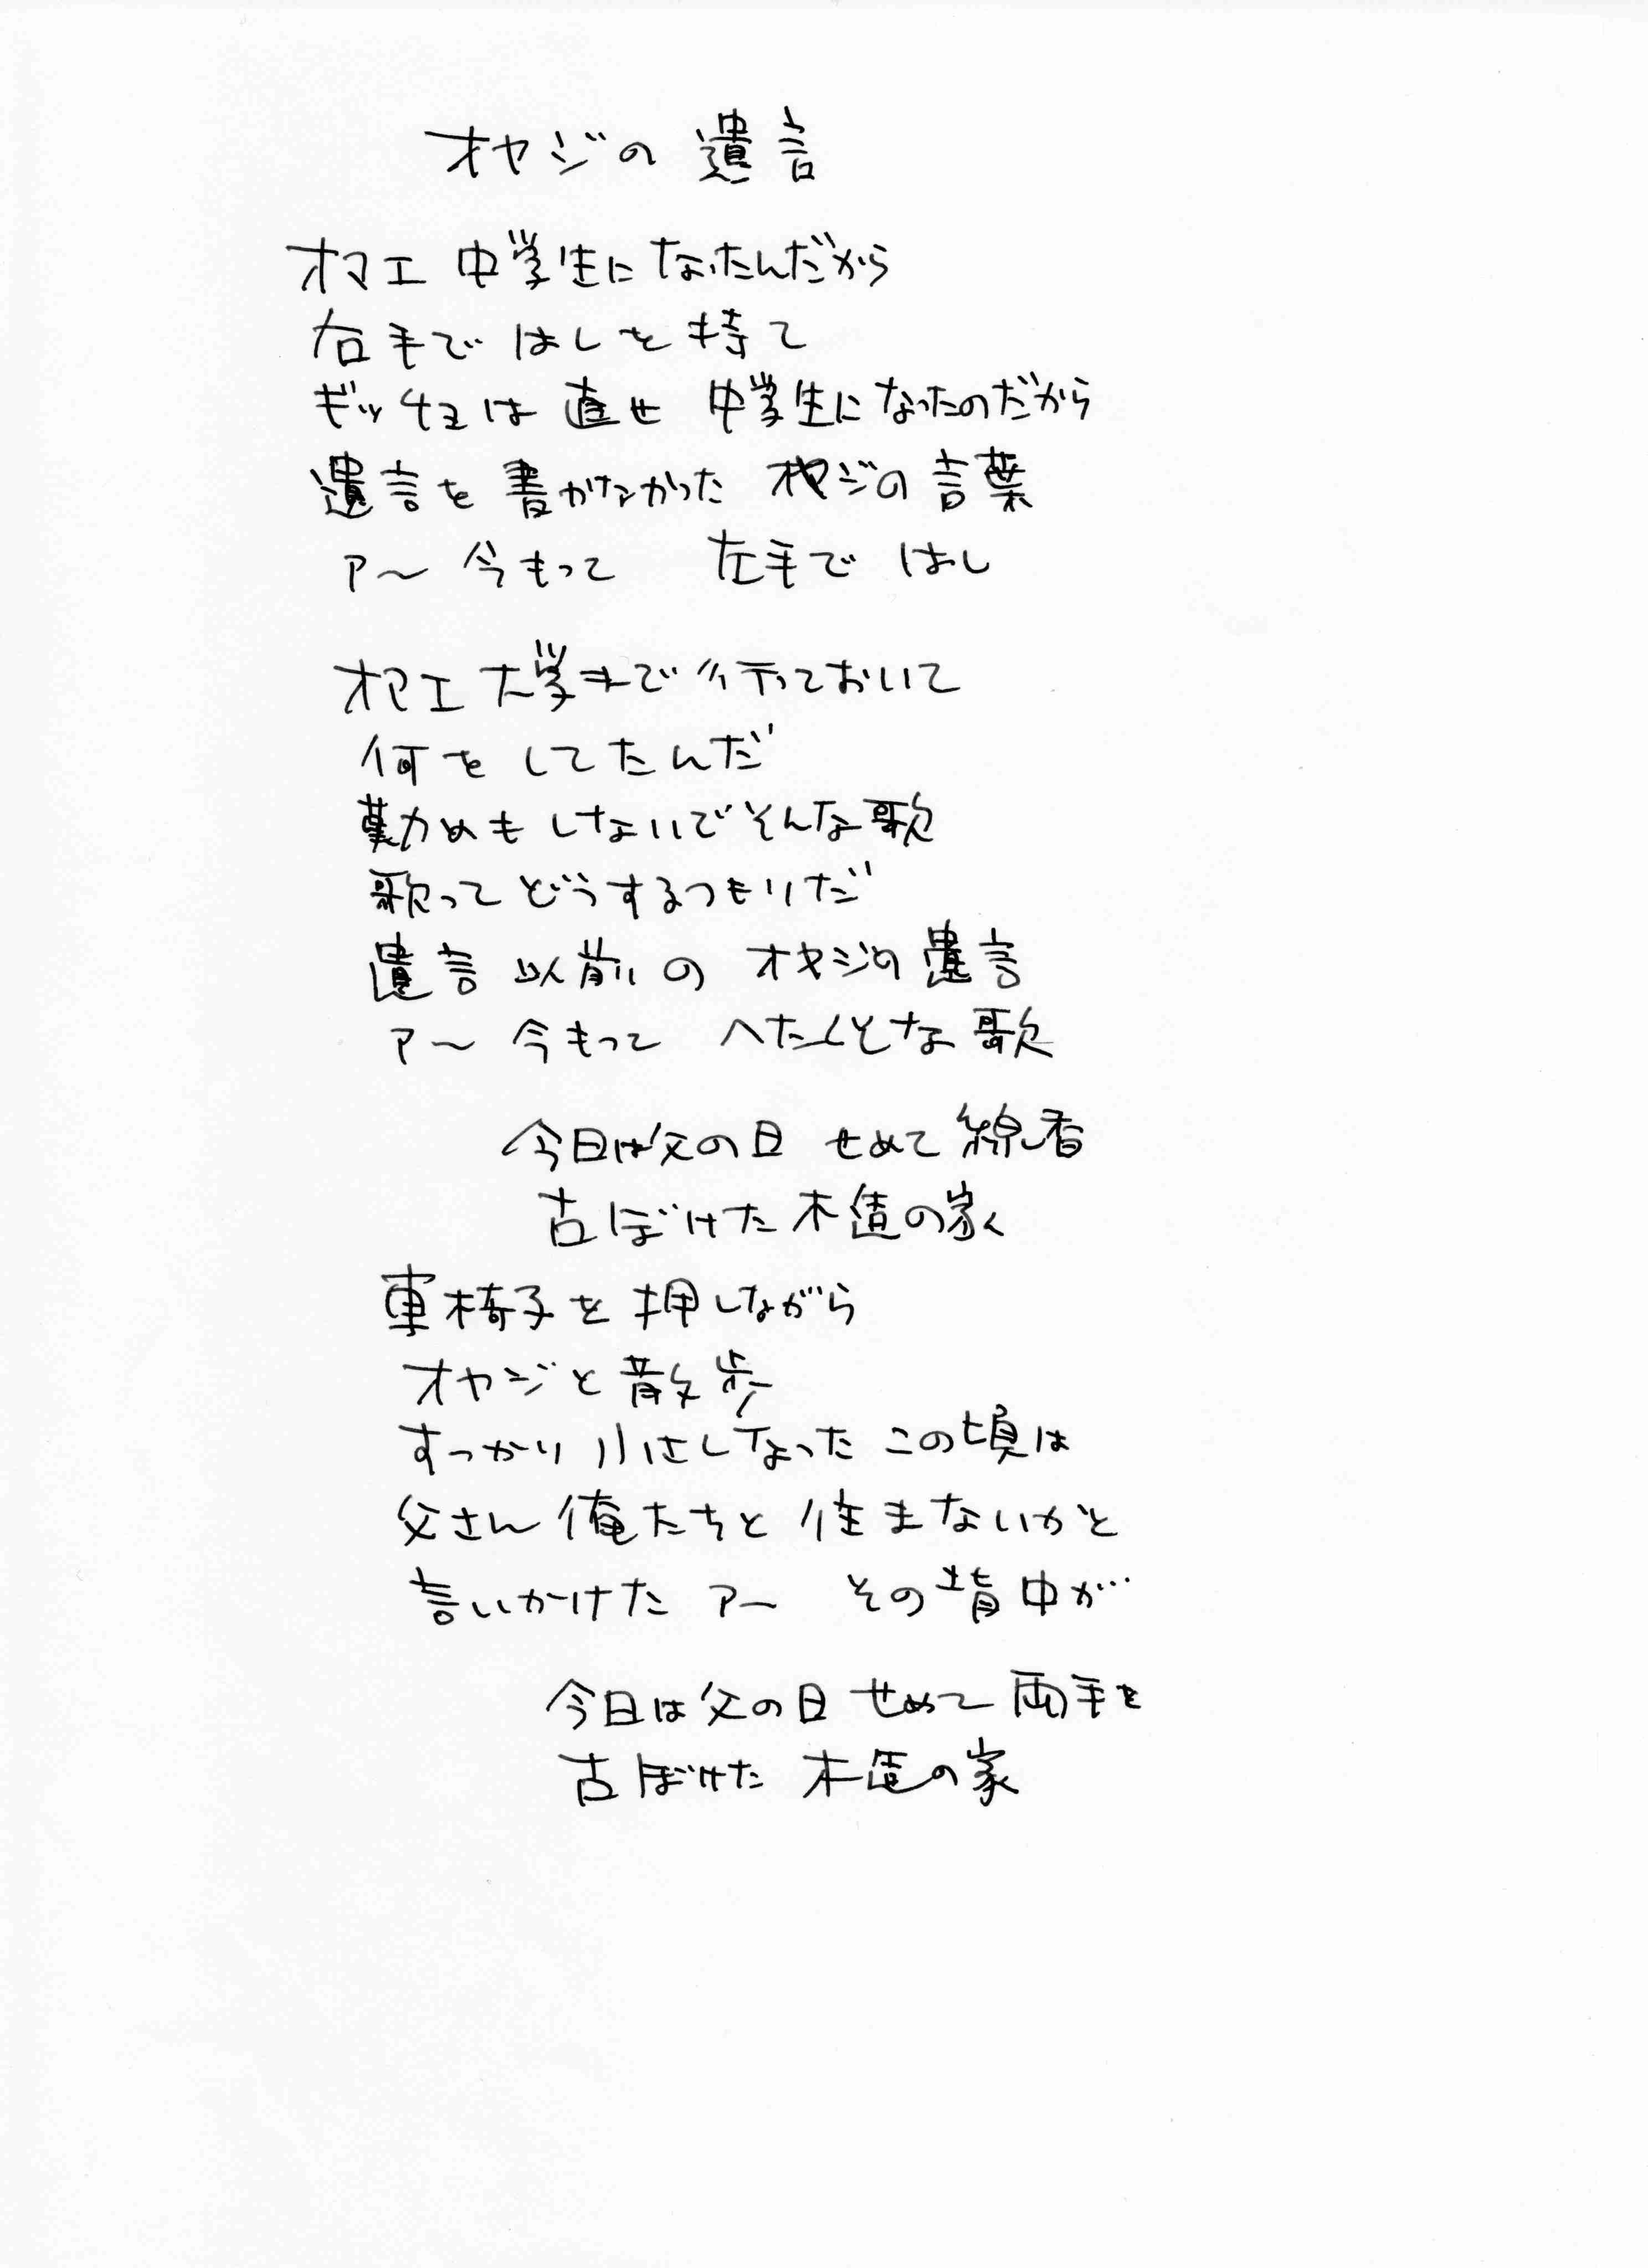 オヤジの遺言
オマエ 中学生になったんだから
右手で はしを持て
ギッチョは 直せ 中学生になったのだから
遺言を 書かなかった オヤジの 言葉
ア〜 今もって 左手で はし
オマエ 大学まで行っておいて
何をしてたんだ
勤めもしないでそんな歌
歌ってどうするつもりだ
遺言以前の オヤジの遺言
ア〜 今もって へたくそな歌
今日は父の日 せめて線香
古ぼけた木造の家
車椅子を押しながら
オヤジと散歩
すっかり小さくなった この頃は
父さん俺たちと 住まないかと
言いかけた アー その背中が…
今日は父の日 せめて両手を
古ぼけた 木造の家